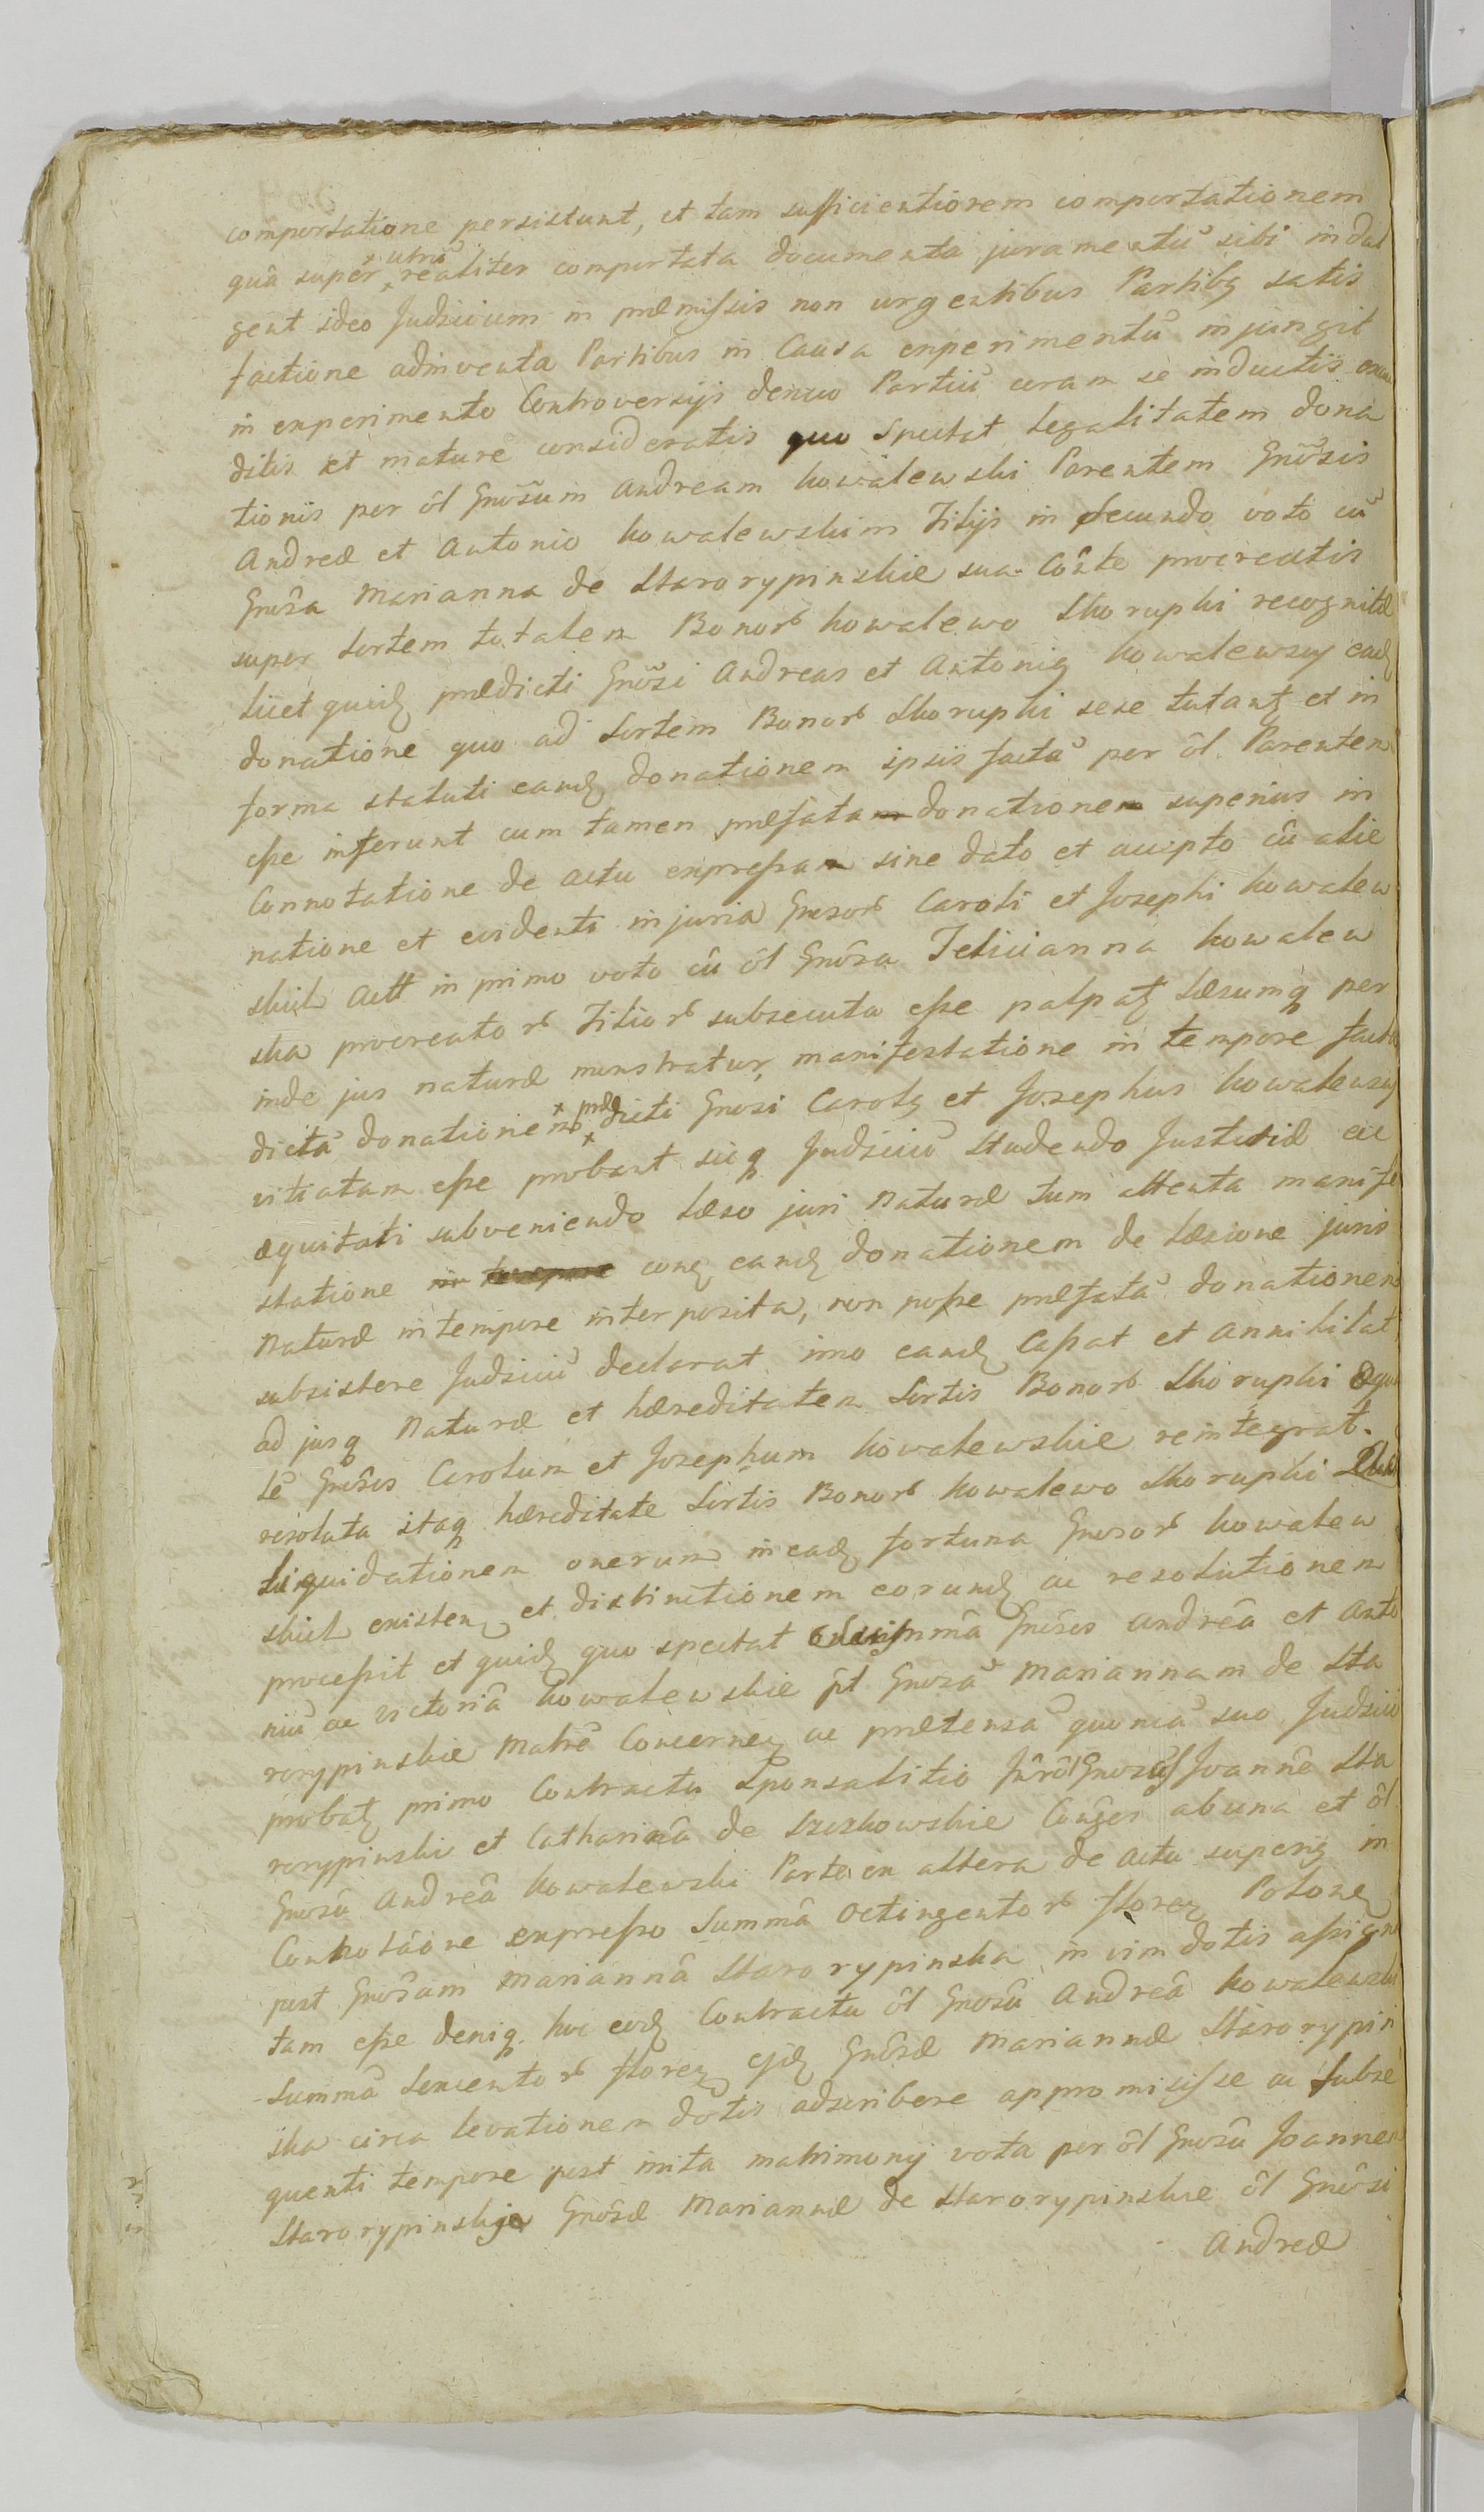 comportatione persistunt, et tam sufficientiorem comportationem
quā super utrī realiter comportata documenta juramentū sibi indul
gent ideo Judicium in præmissis non urgentibus Partibq satis
factione adinventa Partibus in Causa experimentū injungit
in experimento Controversijs denuo Partiū coram se inductis exau
ditis et mature consideratis quo Spectat legalitatem dona
tionis per ōl Gnōsum Andream Kowalewski Parentem Gnōsis
Andreæ et Antonio Kowalewskim Filijs in secundo voto cū
Gnōsa Marianna de Starorypinskie sua Cōnte procreatis
super Sortem totalem Bonorb Kowalewo Skorupki recognitæ
licet quidq prædicti Gnōsi Andreas et Antoniq Kowalewscy eadq
donatione quo ad Sortem Bonorb Skorupki sese tutantq et in
forma statuti eandq donationem ipsis factā per ōl. Parentem
esse inferunt cum tamen præfatam donationem superius in
Connotatione de actu expressam sine dato et accepto cū alie
natione et evidenti injuria Gnosorb Caroli et Josephi Kowalew
skich actt in primo voto cū ōl Gnōsa Felicianna Kowalew
ska procreatorb Filiorb subsecuta esse palpatq læsumq per
inde jus naturæ monstratur, manifestatione in tempore facta
dictā donationem prædicti Gnosi Carolq et Josephus Kowalewscy
vitiatam esse probant sicq Judiciū Studendo Justitiæ ac
æquitati subveniendo læso juri Naturæ tum attenta manife
statione in tempore conq eandq donationem de læsione juris
Naturæ in tempore interposita, non posse præfatā donationem
subsistere Judiciū declarat imo eandq Cassat et Annihilat
ad jusq Naturæ et hæreditatem Sortis Bonorb Skorupki æqua
lē Gnōsos Carolum et Josephum Kowalewskie reintegrat.
resoluta itaq hæreditate Sortis Bonorb Kowalewo Skorupki
liquidationem onerum in eadq fortuna Gnosorb Kowalew
skich existenq et distinctionem eorundq ac resolutionem
processit et quidq quo spectat summā Gnōsos Andreā et Anto
niū ac Victoriā Kowalewskie pt Gnosā Mariannam de Sta
rorypinskie Matrē Concernenq ac prætensā quoniā suo Judiciō
probatq primo Contractu Sponsalitio Gnosūs Joannē Sta
rorypinski et Catharinā de Szczkowskie Conges ab una et ōl
Gnosū Andreā Kowalewski Parte ex altera de actu superiq in
Connotāone expresso Summā Octingentorb florenq Polonq
post Gnōsam Mariannā Starorypinska in vim dotis assigna
tam esse deniq. hoc eodq Contractu ōl Gnosū Andreā Kowalewski
Summā Sexcentorb florenq ejdq Gnōsæ Mariannæ Starorypin
ska circa levationem dotis adscribere appromisisse ac subse
quenti tempore post inita matrimonij vota per ōl Gnosū Joannem
Starorypinski Gnōsæ Mariannæ de Starorypinskie ōl Gnōsi
Andreæ